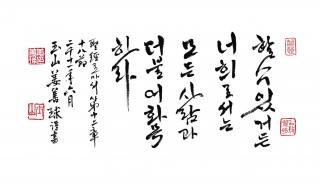 할 수 있거든
너희로서는
모든 사람과
더불어 화목
하라
聖經 로마서 第十二章
十八節
二千十二年 六月
玉山